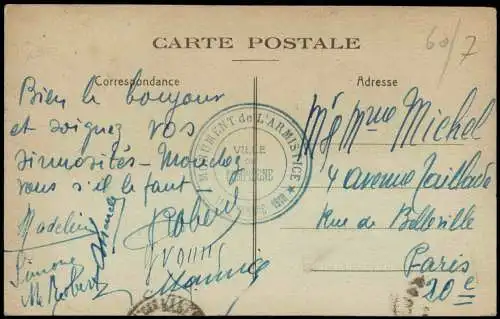 60/7
CARTE POSTALE
Correspondance
Adresse
Bien le bonjour
et soignez vos
sinuosités - Mouchez
vous s'il le faut -
Madeleine
Robert
Simone
Yvonne
M Robert
Maurice
MONUMENT de L'ARMISTICE
VILLE
DE
COMPIEGNE
11 NOVEMBRE 1918
Mr Mme Michel
4 avenue Taillade
Rue de Belleville
Paris
20e